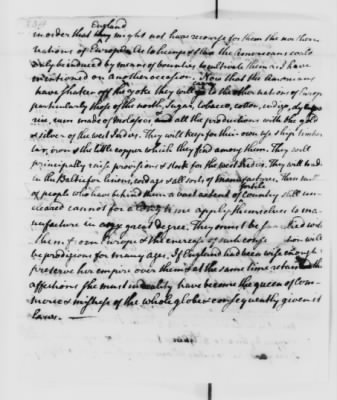 England
in order that they might not have recourse for them the northern
nations of Europe. As to hemp & flax the American coasts
only be induced by means of bounties to cultivate them as I have
mentioned on another occasion. Now that the Americans
have shaken off the yoke they will carry to the other nations of Europe
particularly those of the north, Sugar, tobacco, cotton, indigo,
rice, rum made of molasses and all the productions with the gold
& silver of the west Indies. They will keep for their own use ship timber
tar, iron & the little copper which they find among them. They will
principally raise provisions & stock for the west Indies. They will trade
in the Baltic for linens, cordage & all sorts of manufactures. These sort
fertile
of people who have behind them a vast extent of country still un-
cleared cannot for a long time apply themselves to ma-
nufacture in any great degree. They must be furnished with
them from Europe & the encrease of such consumption will
be prodigious for many ages. If England had been wise enough to
preserve her empire over them & at the same time retain the
affections she must inevitably have become the queen of com-
merce & mistress of the whole globe & consequently given it
laws. —